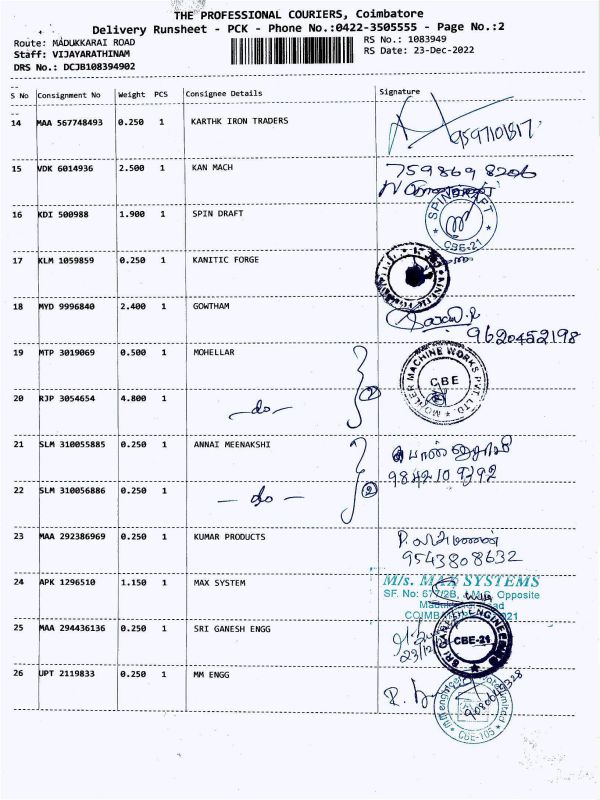 THE PROFESSIONAL COURIERS, Coimbatore
Delivery Runsheet - PCK - Phone No.:0422-3505555 - Page No.:2
Route: MADUKKARAI ROAD
RS No.: 1083949
Staff: VIJAYARATHINAM
RS Date: 23-Dec-2022
DRS No.: DCJB108394902
S No Consignment No Weight PCS Consignee Details Signature
14 MAA 567748493 0.250 1 KARTHK IRON TRADERS
15 VDK 6014936 2.500 1 KAN MACH 7598698206
16 KDI 500988 1.900 1 SPIN DRAFT SPIN DRAFT CBE-21
17 KLM 1059859 0.250 1 KANITIC FORGE
18 MYD 9996840 2.400 1 GOWTHAM
9620452198
19 MTP 3019069 0.500 1 MOHELLAR MOHLER MACHINE WORKS PVT. LTD. CBE
20 RJP 3054654 4.800 1 -do- 2
21 SLM 310055885 0.250 1 ANNAI MEENAKSHI
22 SLM 310056886 0.250 1 -do- 2
23 MAA 292386969 0.250 1 KUMAR PRODUCTS
9543808632
24 APK 1296510 1.150 1 MAX SYSTEM M/s. MAX SYSTEMS
SF. No: 677/2B, Opposite
25 MAA 294436136 0.250 1 SRI GANESH ENGG SRI GANESH ENGINEERING CBE-21
26 UPT 2119833 0.250 1 MM ENGG
CBE-105